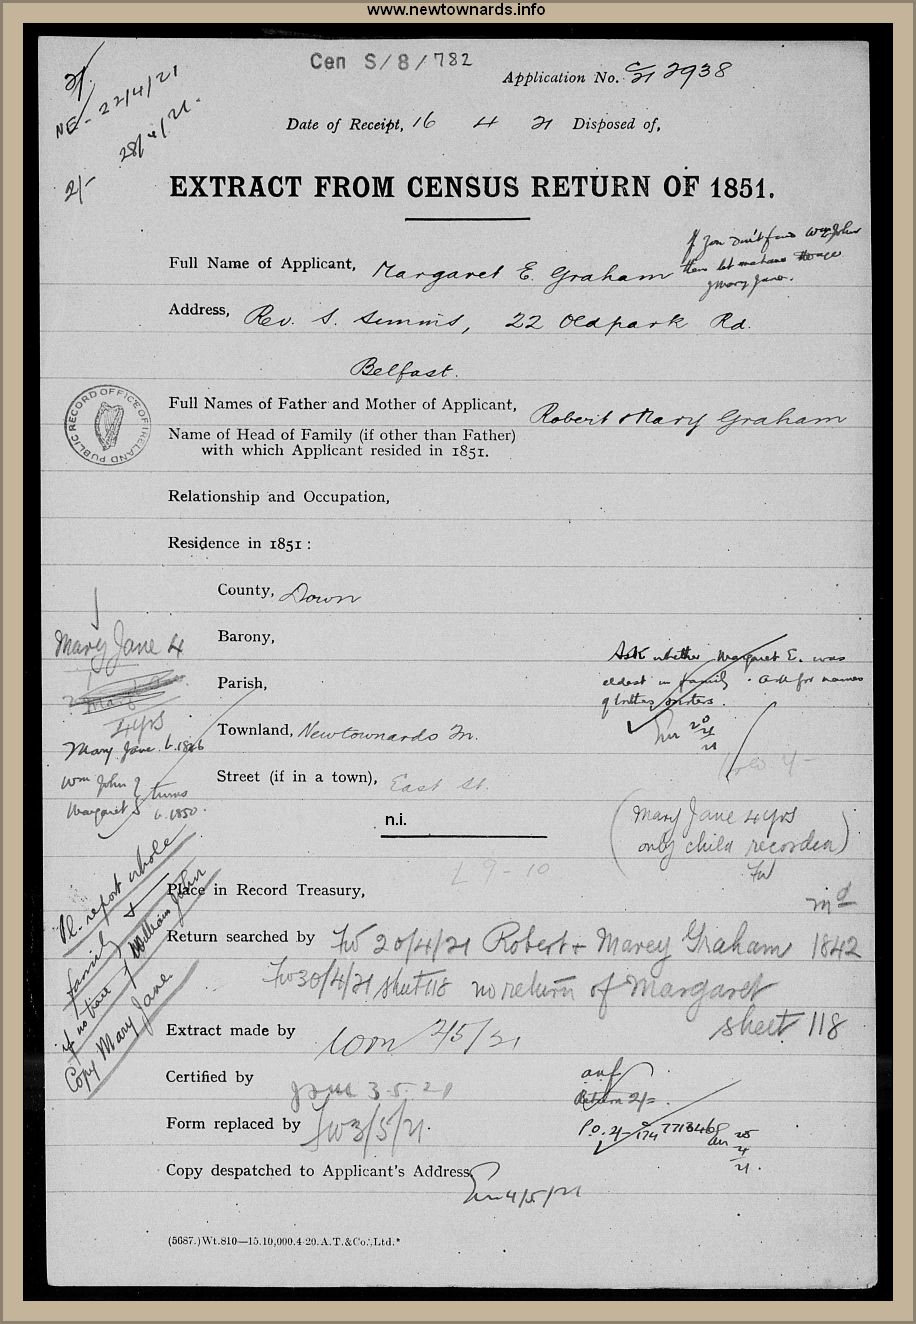 www.newtownards.info
Cen S/8/782
Application No. C/21 2938
2/-
NE - 22/4/21
28/4/21.
2/-
Date of Receipt, 16 4 21 Disposed of,
EXTRACT FROM CENSUS RETURN OF 1851.
If you don't find Wm John
then let me have the age
of Mary Jane.
Full Name of Applicant, Margaret E. Graham
Address, Rev. S. Simms, 22 Oldpark Rd.
Belfast.
PUBLIC RECORD OFFICE OF IRELAND
Full Names of Father and Mother of Applicant, Robert & Mary Graham
Name of Head of Family (if other than Father)
with which Applicant resided in 1851.
Relationship and Occupation,
Residence in 1851 :
County, Down
Mary Jane 4
4 yrs
Mary Jane b. 1846
Wm John } twins
Margaret b. 1850.
Barony,
Parish,
Townland, Newtownards Tn.
Street (if in a town), East St.
Ask whether Margaret E. was
eldest in family. Ask for names
of brothers sisters.
20/4/21
(Mary Jane 4 yrs
only child recorded)
FW
n.i.
L 9-10
Pl. report whole
family &
if no trace of William John
Copy Mary Jane
Place in Record Treasury,
Return searched by FW 20/4/21 Robert + Mary Graham md 1842
FW 30/4/21 sheet 118 no return of Margaret
sheet 118
Extract made by 2/5/21
Certified by 3.5.21
Form replaced by FW 3/5/21.
Return 2/=.
P.O. 2/- 174 771346
25/4/21.
Copy despatched to Applicant's Address, 4/5/21
(5687.)Wt.810—15.10,000.4-20.A.T.&Co.,Ltd.*